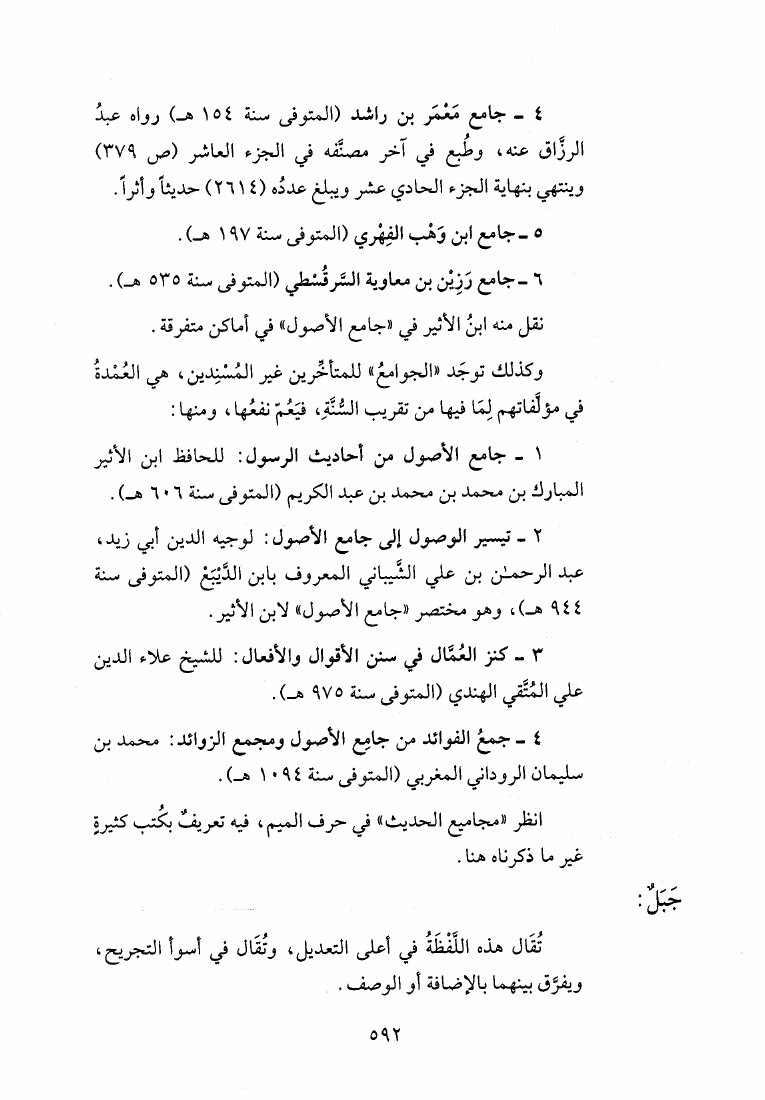 ٤ ـ جامع مَعْمَر بن راشد (المتوفى سنة ١٥٤ هـ) رواه عبدُ
الرزَّاق عنه، وطُبع في آخر مصنَّفه في الجزء العاشر (ص ٣٧٩)
وينتهي بنهاية الجزء الحادي عشر ويبلغ عددُه (٢٦١٤) حديثاً وأثراً.
٥ ـ جامع ابن وَهْب الفِهْري (المتوفى سنة ١٩٧ هـ).
٦ ـ جامع رَزِيْن بن معاوية السَّرقُسْطي (المتوفى سنة ٥٣٥ هـ).
نقل منه ابنُ الأثير في «جامع الأصول» في أماكن متفرقة.
وكذلك توجَد «الجوامعُ» للمتأخِّرين غير المُسْنِدين، هي العُمْدةُ
في مؤلَّفاتهم لِمَا فيها من تقريب السُّنَّةِ، فيَعُمّ نفعُها، ومنها:
١ ـ جامع الأصول من أحاديث الرسول: للحافظ ابن الأثير
المبارك بن محمد بن محمد بن عبد الكريم (المتوفى سنة ٦٠٦ هـ).
٢ ـ تيسير الوصول إلى جامع الأصول: لوجيه الدين أبي زيد،
عبد الرحمـٰن بن علي الشَّيباني المعروف بابن الدَّيْبَعْ (المتوفى سنة
٩٤٤ هـ)، وهو مختصر «جامع الأصول» لابن الأثير.
٣ ـ كنز العُمَّال في سنن الأقوال والأفعال: للشيخ علاء الدين
علي المُتَّقي الهندي (المتوفى سنة ٩٧٥ هـ).
٤ ـ جمعُ الفوائد من جامِع الأصول ومجمع الزوائد: محمد بن
سليمان الروداني المغربي (المتوفى سنة ١٠٩٤ هـ).
انظر «مجاميع الحديث» في حرف الميم، فيه تعريفٌ بكُتب كثيرةٍ
غير ما ذكرناه هنا.
جَبَلٌ:
تُقَال هذه اللَّفْظَةُ في أعلى التعديل، وتُقَال في أسوأ التجريح،
ويفرَّق بينهما بالإضافة أو الوصف.
٥٩٢